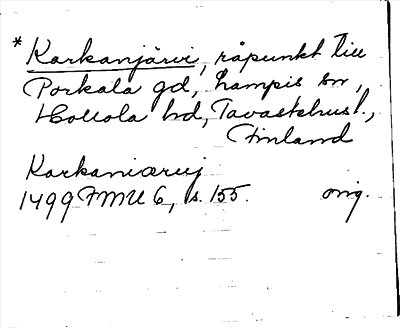 * Karkanjärvi, råpunkt till
Porkala gd, Lampis sn,
Hollola hd, Tavastehus l.,
Finland
Karkaniærwj
1499 FMU 6, s. 155. orig.